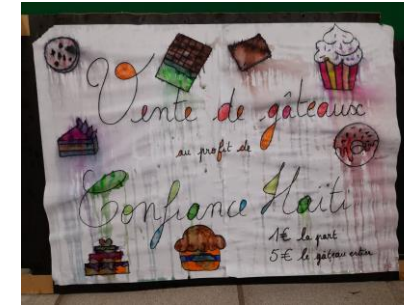 Vente de gâteaux
au profit de
Confiance Haïti
1€ la part
5€ le gâteau entier